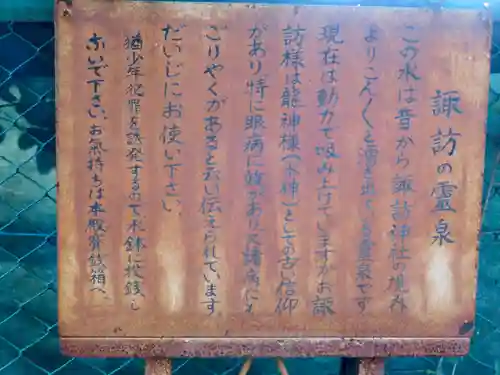 諏訪の霊泉
この水は昔から諏訪神社の境内
よりこん〱と湧き出ている霊泉です
現在は動力で吸み上げていますがお諏
訪様は龍神様(水神)としての古い信仰
があり特に眼病に効があり又諸病にも
ごりやくがあると云い伝えられています
だいじにお使い下さい。
猶少年犯罪を誘発するので水鉢に投銭し
ないで下さい。お気持ちは本殿賽銭箱へ。